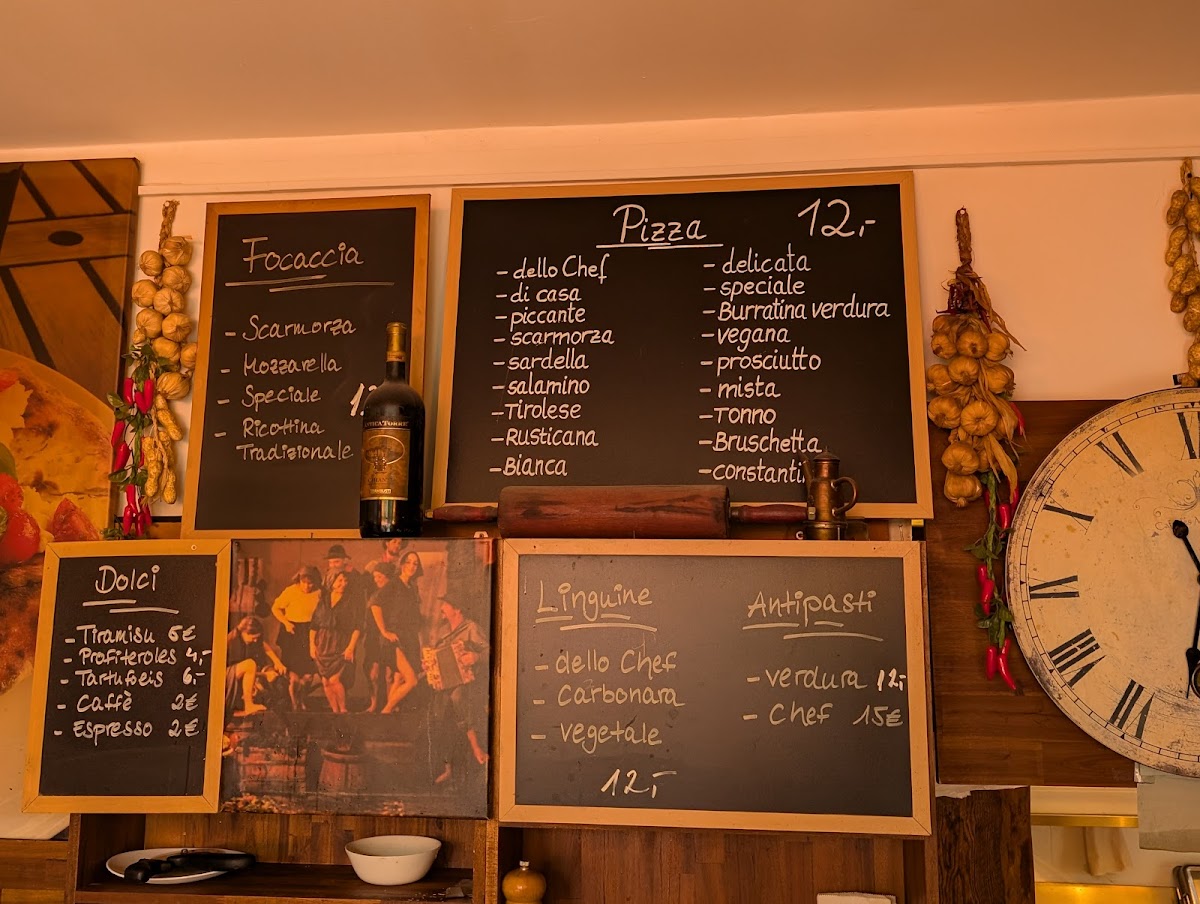 Focaccia
- Scarmorza
- Mozzarella
- Speciale
- Ricottina
Tradizionale
Pizza 12,-
- dello Chef
- di casa
- piccante
- scarmorza
- sardella
- salamino
- Tirolese
- Rusticana
- Bianca
- delicata
- speciale
- Burratina verdura
- vegana
- prosciutto
- mista
- Tonno
- Bruschetta
Dolci
- Tiramisu 6€
- Profiteroles 4,-
- Tartufoeis 6,-
- Caffè 2€
- Espresso 2€
Linguine
- dello Chef
- Carbonara
- vegetale
12,-
Antipasti
- verdura 12,-
- Chef 15€